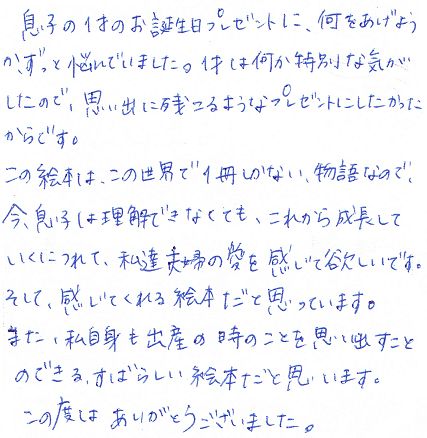 息子の1才のお誕生日プレゼントに、何をあげよう
か、ずっと悩んでいました。1才は何か特別な気が
したので、思い出に残つるようなプレゼントにしたかった
からです。
この絵本は、この世界で1冊しかない、物語なので、
今、息子は理解できなくても、これから成長して
いくにつれて、私達夫婦の愛を感じて欲しいです。
そして、感じてくれる絵本だと思っています。
また、私自身も出産の時のことを思い出すこと
のできる、すばらしい絵本だと思います。
この度は ありがとうございました。